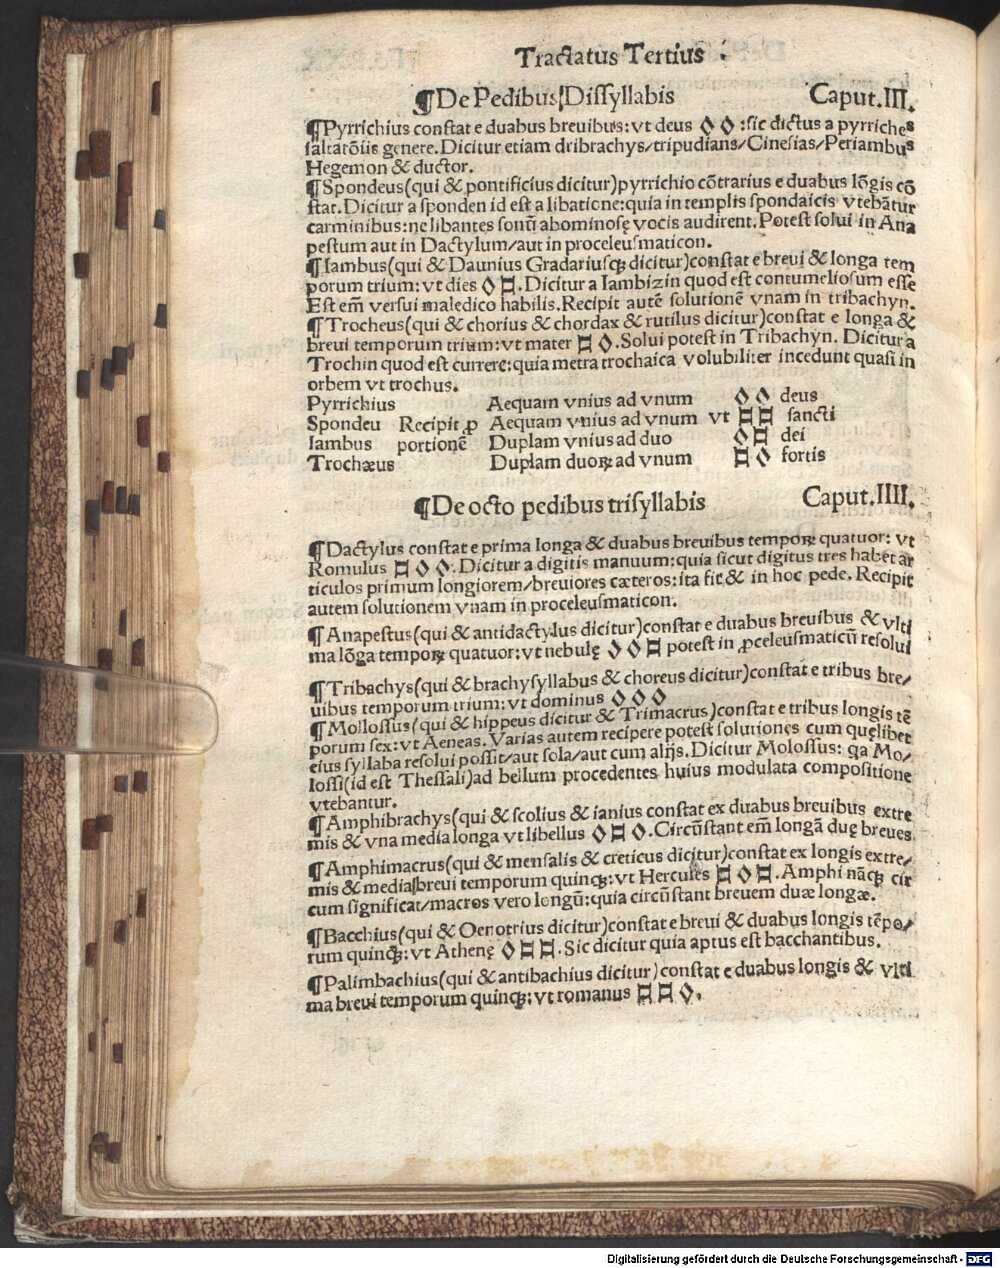 Tractatus Tertius .
¶De Pedibus Dissyllabis Caput.III.
¶Pyrrichius constat e duabus breuibus: vt deus ◊ ◊ :sic dictus a pyrriches
saltatōiis genere. Dicitur etiam dribrachys/tripudians/Cinesias/Periambus
Hegemon & ductor.
¶Spondeus(qui & pontificius dicitur)pyrrichio cōtrarius e duabus lōgis cō
stat. Dicitur a sponden id est a libatione:quia in templis spondaicis vtebātur
carminibus:ne libantes sonū abominosę vocis audirent. Potest solui in Ana
pestum aut in Dactylum/aut in proceleusmaticon.
¶Iambus(qui & Daunius Gradariusqȝ dicitur)constat e breui & longa tem
porum trium: vt dies ◊ □. Dicitur a Iambizin quod est contumeliosum esse
Est em̄ versui maledico habilis. Recipit autē solutionē vnam in tribachyn.
¶Trocheus(qui & chorius & chordax & rutilus dicitur)constat e longa &
breui temporum trium: vt mater □ ◊. Solui potest in Tribachyn. Dicitur a
Trochin quod est currere: quia metra trochaica volubiliter incedunt quasi in
orbem vt trochus.
Pyrrichius Aequam vnius ad vnum ◊ ◊ deus
Spondeu Recipit ꝓ Aequam vnius ad vnum vt □ □ sancti
Iambus portionē Duplam vnius ad duo ◊ □ dei
Trochæus Duplam duoꝝ ad vnum □ ◊ fortis
¶De octo pedibus trisyllabis Caput.IIII.
¶Dactylus constat e prima longa & duabus breuibus tempoꝝ quatuor: vt
Romulus □ ◊ ◊. Dicitur a digitis manuum: quia sicut digitus tres habet ar
ticulos primum longiorem/breuiores cæteros: ita fit & in hoc pede. Recipit
autem solutionem vnam in proceleusmaticon.
¶Anapestus(qui & antidactylus dicitur)constat e duabus breuibus & vlti
ma lōga tempoꝝ quatuor: vt nebulę ◊ ◊ □ potest in ꝓceleusmaticū resolui
¶Tribachys(qui & brachysyllabus & choreus dicitur)constat e tribus bre/
uibus temporum trium: vt dominus ◊ ◊ ◊
¶Mollossus(qui & hippeus dicitur & Trimacrus)constat e tribus longis tē
porum sex: vt Aeneas. Varias autem recipere potest solutiones cum quęlibet
eius syllaba resolui possit/aut sola/aut cum alijs. Dicitur Molossus: qa Mo/
lossi(id est Thessali)ad bellum procedentes huius modulata compositione
vtebantur.
¶Amphibrachys(qui & scolius & ianius constat ex duabus breuibus extre
mis & vna media longa vt libellus ◊ □ ◊. Circūstant em̄ longā duę breues
¶Amphimacrus(qui & mensalis & creticus dicitur)constat ex longis extre/
mis & media breui temporum quinqȝ: vt Hercules □ ◊ □. Amphi nāqȝ cir
cum significat/macros vero longū: quia circūstant breuem duæ longæ.
¶Bacchius(qui & Oenotrius dicitur)constat e breui & duabus longis tēpo/
rum quinqȝ: vt Athenę ◊ □ □. Sic dicitur quia aptus est bacchantibus.
¶Palimbachius(qui & antibachius dicitur) constat e duabus longis & vlti
ma breui temporum quinqȝ: vt romanus □ □ ◊.
Digitalisierung gefördert durch die Deutsche Forschungsgemeinschaft - DFG